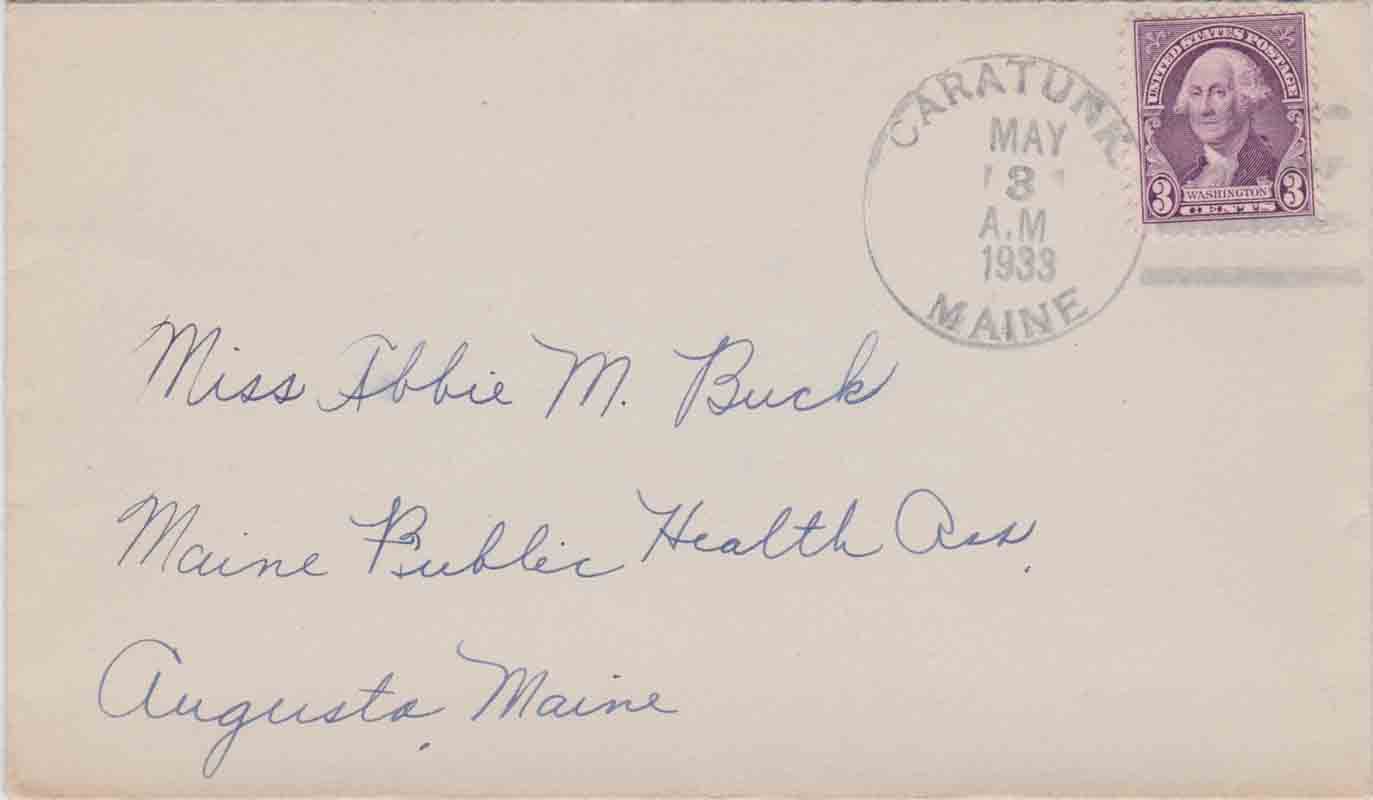 CARATUNK
MAY
3
A.M
1933
MAINE
UNITED STATES POSTAGE
3 WASHINGTON 3
CENTS
Miss Abbie M. Buck
Maine Public Health Ass.
Augusta, Maine